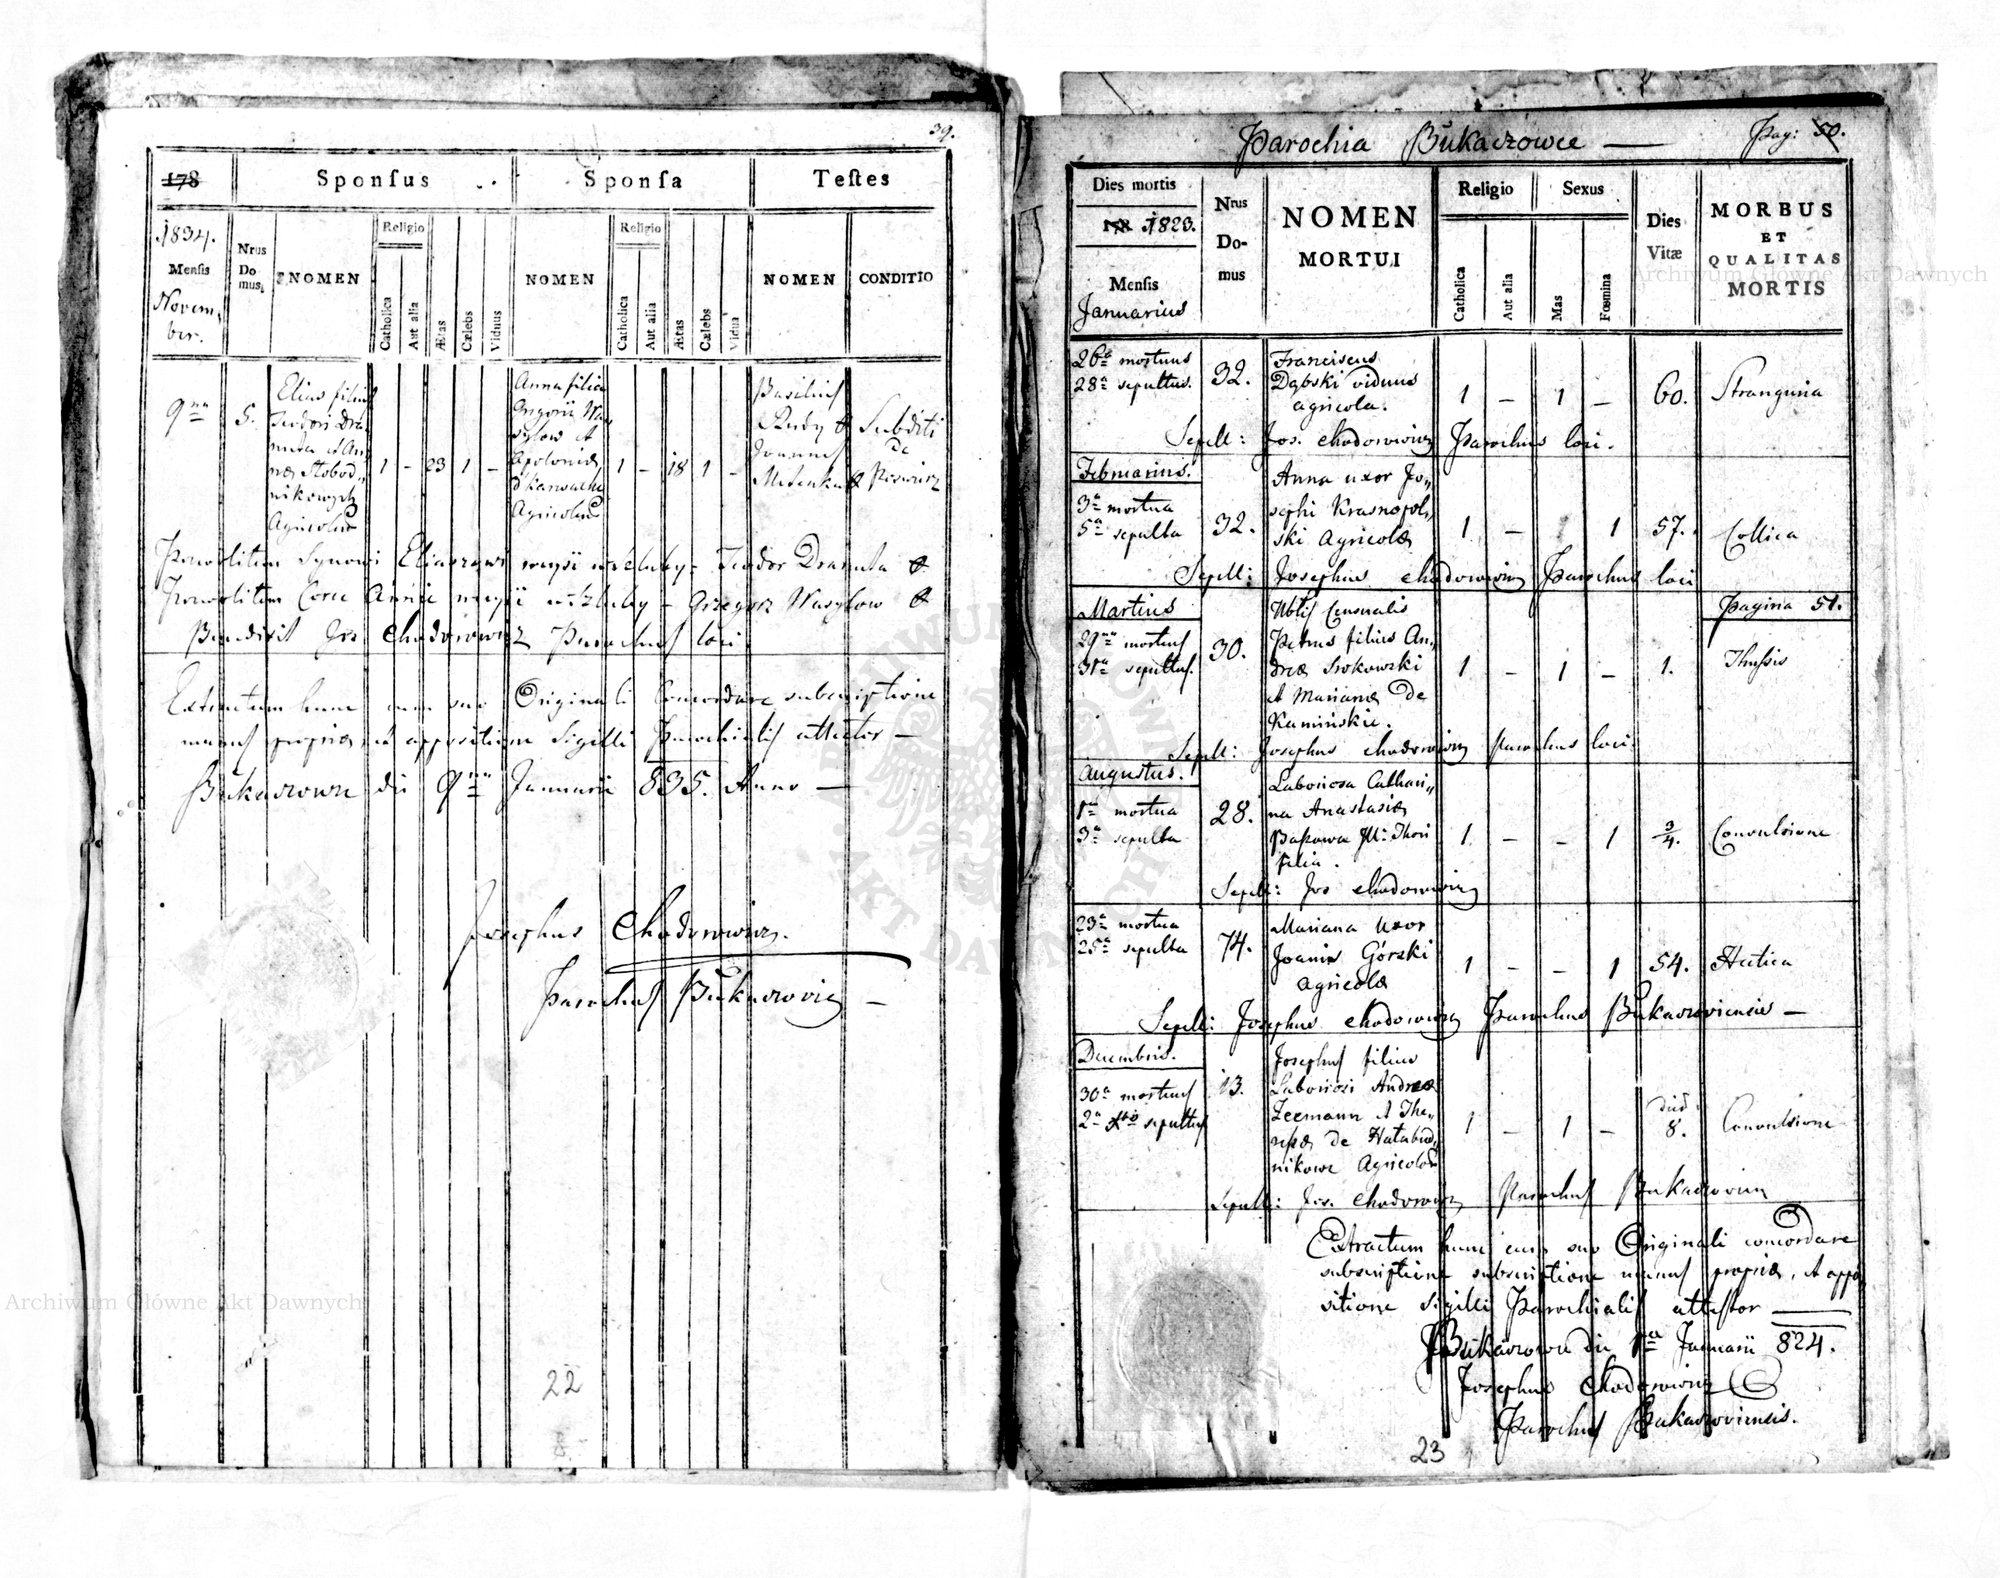 39.
178 Sponſus Sponſa Teſtes
1834.
Menſis
Novem,
ber.
Nrus
Do
mus
NOMEN
Religio
Catholica
Aut alia
Ætas
Cælebs
Viduus
NOMEN
Religio
Catholica
Aut alia
Ætas
Cælebs
Vidua
NOMEN
CONDITIO
9na
5.
Elias filius
Teodori Dra„
muta et An„
næ Słobod„
nikowych
Agricolæ
1 – 23 1 –
Anna filia
Grigorii Wa„
sylow et
Apoloniæ
Agricolæ
1 – 18 1 –
Basilius
Rudy
Joannes
Subditi
de
Synowi Eliaszowi Teodor
Corce Annie Grzegorz Wasylow
Benedixit Jos. Chodorowicz Parochus loci
Extractum hunc cum suo Originali Concordare subscriptione
manus propriæ, et appositione Sigilli Parochialis attestor —
Bukaczowce die 9na Januarii 835. Anno —
Josephus Chodorowicz.
Parochus Bukaczovien —
22
Parochia Bukaczowce — Pag: 50.
Dies mortis
178 1823.
Menſis
Januarius
Nrus
Do-
mus
NOMEN
MORTUI
Religio
Catholica
Aut alia
Sexus
Mas
Fœmina
Dies
Vitæ
MORBUS
ET
QUALITAS
MORTIS
26a mortuus
28a sepultus.
32.
Franciscus
Dąbski viduus
agricola.
1 – 1 – 60. Stranguria
Sepell: Jos. Chodorowicz Parochus loci.
Februarius.
3a mortua
5a sepulta
32.
Anna uxor Jo„
sephi Krasnopol„
ski Agricolæ
1 – 1 57. Collica
Sepell: Josephus Chodorowicz Parochus loci
Martius
Pagina 51.
29na mortuus
31ma sepultus.
30.
Nblis Censualis
Petrus filius An„
dreæ Srokowski
et Marianæ de
Kamińskie.
1 – 1 – 1. Thyssis
Sepell: Josephus Chodorowicz Parochus loci
Augustus.
1ma mortua
3a sepulta
28.
Laboriosa Cathari„
na Anastasiæ
filia.
1 – – 1 3/4. Convulsione
Sepell: Jos Chodorowicz
23a mortua
25a sepulta
74.
Mariana Uxor
Joanis Górski
Agricolæ
1 – – 1 54. Hectica
Sepell: Josephus Chodorowicz Parochus Bukaczoviensis —
Decembris.
30a mortuus
2a sepultus
13.
Josephus filius
Laboriosi Andreæ
Zeemann et The„
resæ de
nikowe Agricolæ
1 – 1 – 8. Convulsione
Sepell: Jos. Chodorowicz Parochus Bukaczovien
Extractum hunc cum suo Originali concordare
subscriptione subscriptione manus propriæ, et appo„
sitione Sigilli Parochialis attestor —
Bukaczowce die 1ma Januarii 824.
Josephus Chodorowicz
Parochus Bukaczoviensis.
23
Archiwum Główne Akt Dawnych
Archiwum Główne Akt Dawnych
ARCHIWUM GŁÓWNE AKT DAWNYCH